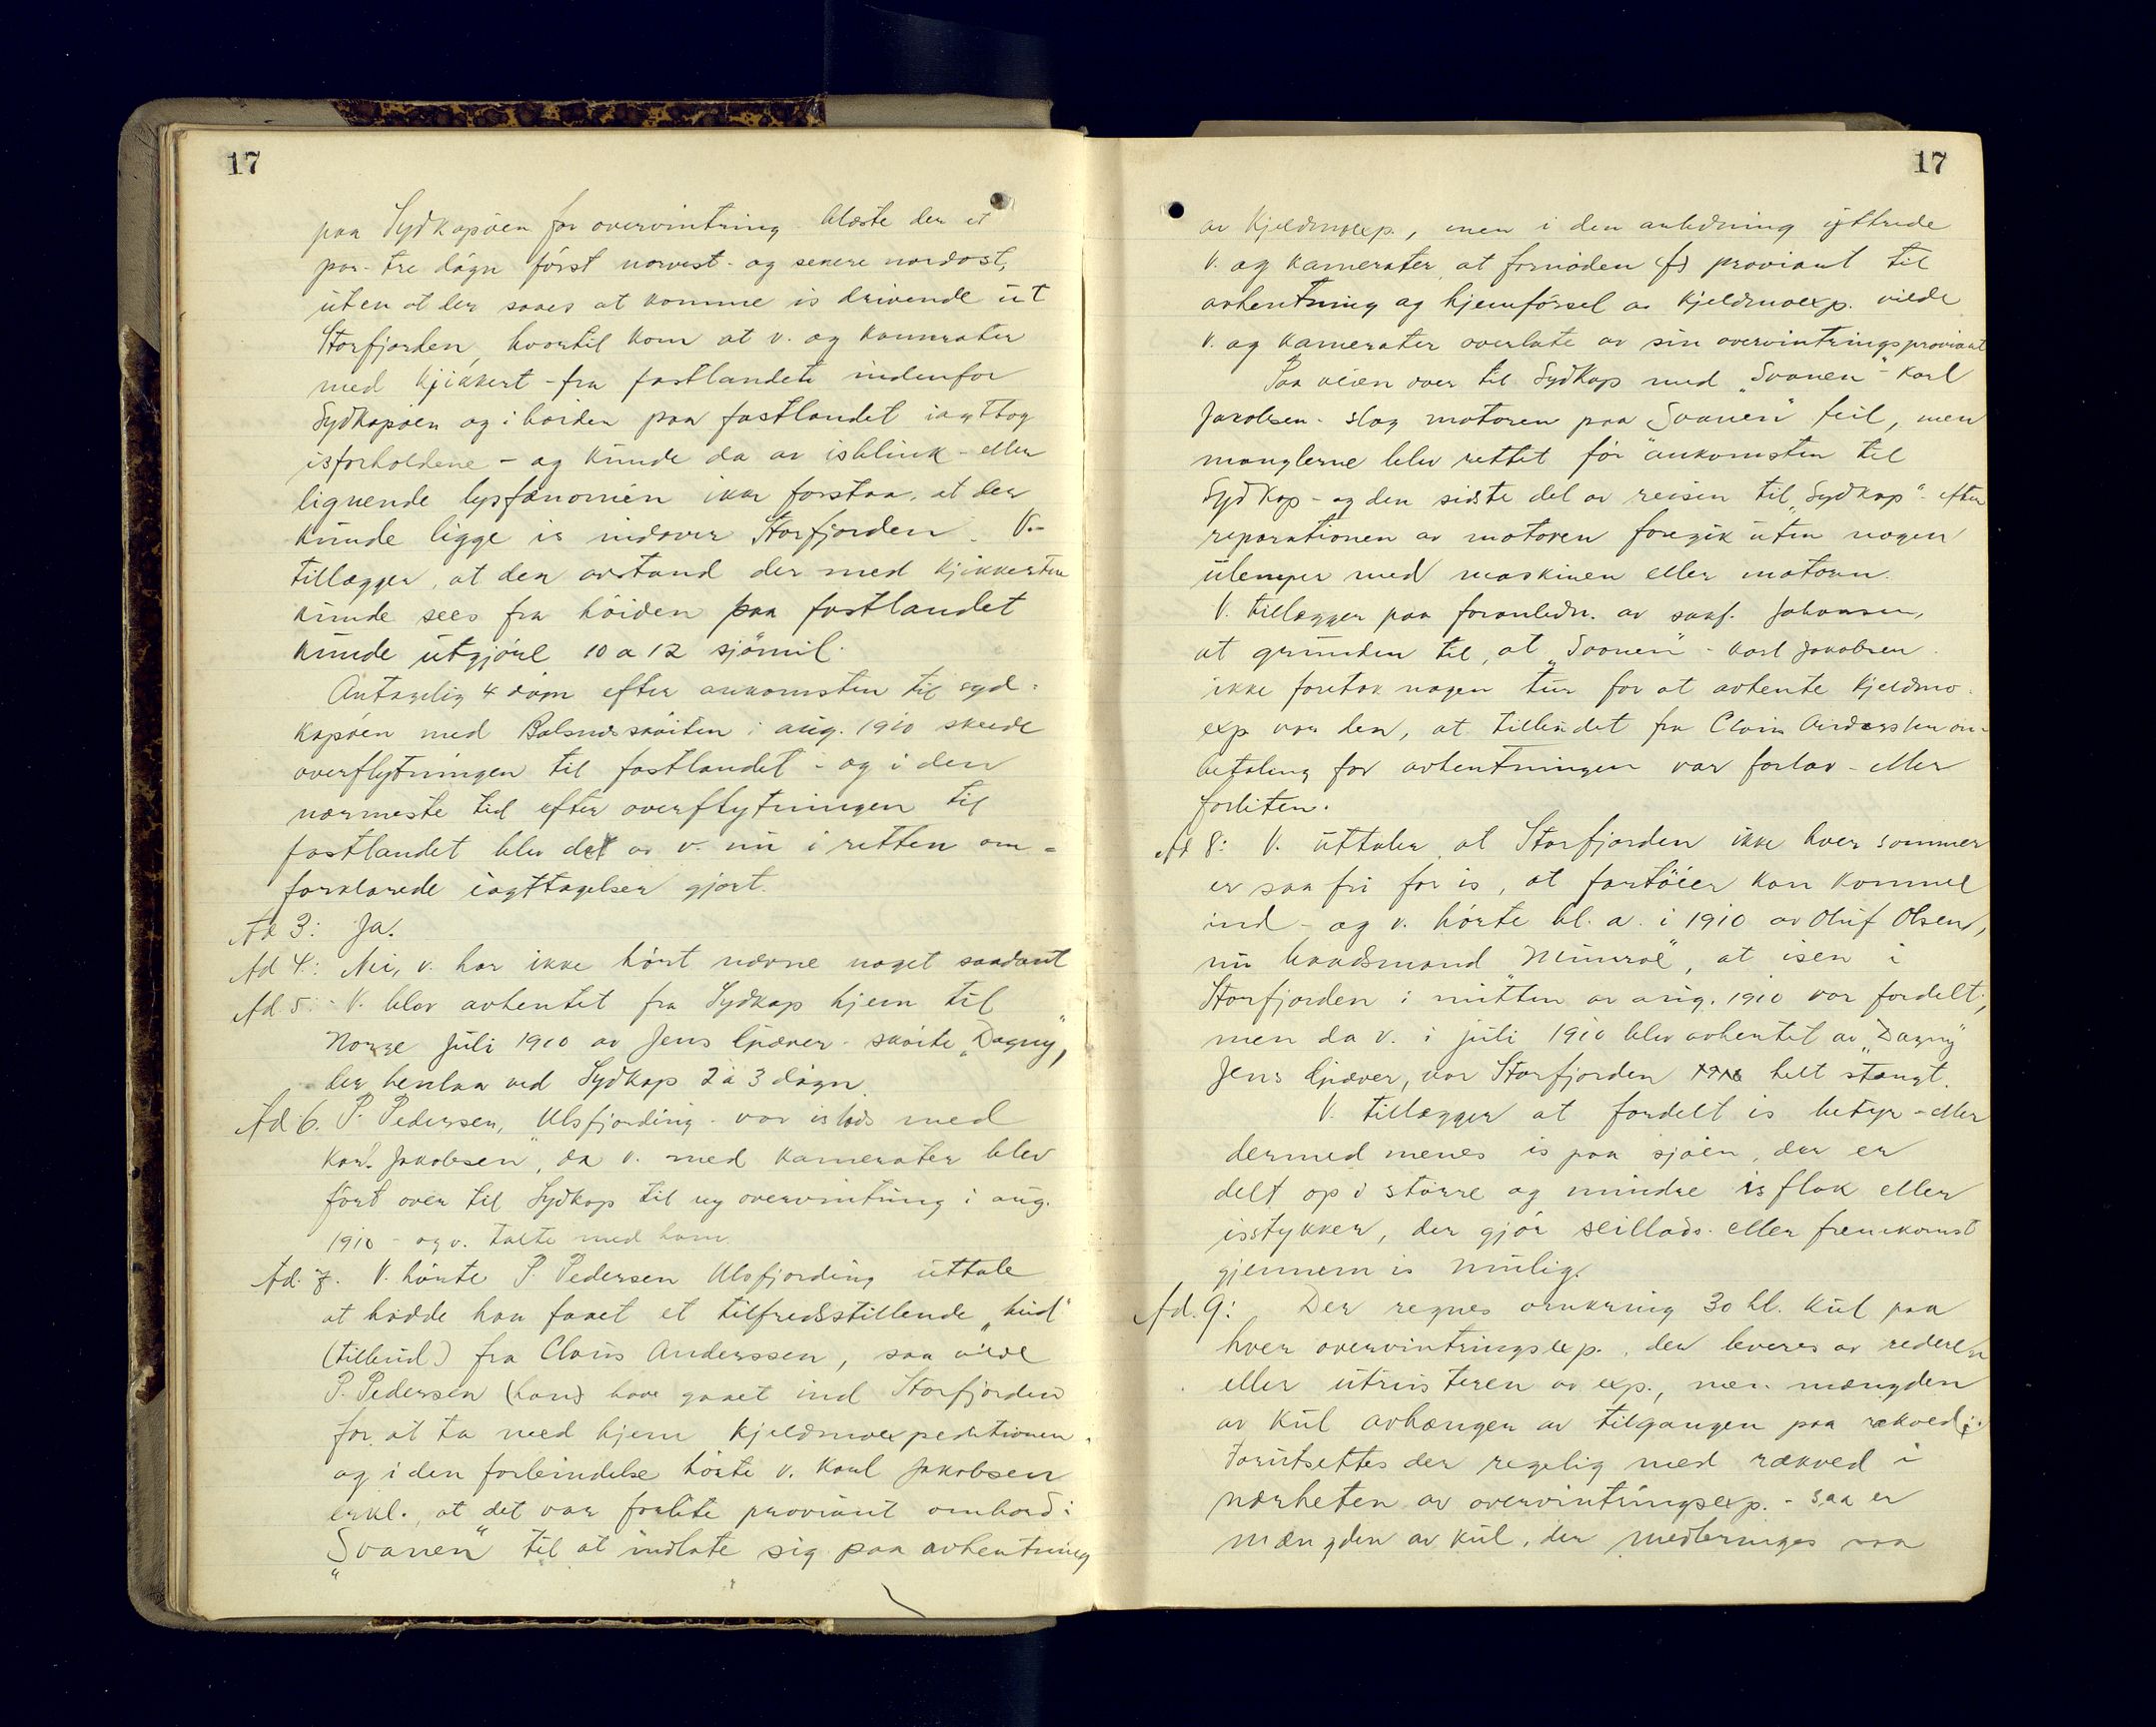 17
paa Sydkapøen for overvintring blæste der et
par-tre døgn først norvest- og senere nordost,
uten at der saaes at komme is drivende ut
Storfjorden, hvortil kom at v. og kamerater
med kjikkert - fra fastlandet indenfor
Sydkapøen og i høiden paa fastlandet iagttog
isforholdene - og kunde da av isblink - eller
lignende lysfænomén ikke forstaa, at der
kunde ligge is indover Storfjorden. V.-
tillægger, at den avstand der med kjikkerten
kunde sees fra høiden paa fastlandet
kunde utgjøre 10 a 12 sjømil.
Antagelig 4 døgn efter ankomsten til syd-
kapøen med Balsnesskøiten i aug. 1910 skeede
overflytningen til fastlandet - og i den
nærmeste tid efter overflytningen til
fastlandet blev det av v. nu i retten om-
forklarede iagttagelser gjort.
Ad 3: Ja.
Ad 4.: Nei, v. har ikke hørt nævne noget saadant
Ad. 5: - V. blev avhentet fra Sydkap hjem til
Norge juli 1910 av Jens Giæver - skøite "Dagny",
der henlaa ved Sydkap 2 à 3 døgn.
Ad 6. P. Pedersen, Ulsfjording - var islods med
Karl Jakobsen, da v. med kamerater blev
ført over til Sydkap til ny overvintring i aug.
1910 - og v. talte med ham.
Ad. 7. V. hørte P. Pedersen Ulsfjording uttale
at hadde han faaet et tilfredsstillende "bud"
(tilbud) fra Claus Anderssen, saa vilde
P. Pedersen (han) have gaaet ind Storfjorden
for at ta med hjem Kjeldsmoexpeditionen,
og i den forbindelse hørte v. Karl Jakobsen
erkl., at det var forlite proviant ombord i
"Svanen" til at indlate sig paa avhentning
17
av Kjeldsmoexp., men i den anledning yttrede
V. og kamerater, at fornøden (f) proviant til
avhentning og hjemførsel av Kjeldsmoexp. vilde
V. og kamerater overlate av sin overvintringsproviant
Paa veien over til Sydkap med "Svanen" - Karl
Jakobsen - slog motoren paa "Svanen" feil, men
manglerne blev rettet før ankomsten til
Sydkap - og den sidste del av reisen til "Sydkap" - efter
reparationen av motoren foregik uten nogen
ulemper med maskinen eller motoren.
V. tillægger paa foranledn. av saaf. Johansen,
at grunden til, at "Svanen" - Karl Jakobsen
ikke foretok nogen tur for at avhente Kjeldsmo-
exp var den, at tilbudet fra Claus Anderssen om
betaling for avhentningen var forlav - eller
forliten.
Ad 8: V. uttaler at Storfjorden ikke hver sommer
er saa fri for is, at fartøier kan komme
ind - og v. hørte bl. a. i 1910 av Oluf Olsen,
nu baadsmand "Munroe", at isen i
Storfjorden i mitten av aug. 1910 var fordelt,
men da v. i juli 1910 blev avhentet av "Dagny"
Jens Giæver, var Storfjorden helt stængt.
V. tillægger at fordelt is betyr - eller
dermed menes is paa sjøen, der er
delt op i større og mindre isflak eller
isstykker, der gjør seillads eller fremkomst
gjennem is mulig.
Ad. 9: Der regnes omkring 30 hl. kul paa
hver overvintringsexp., der leveres av rederen
eller utrusteren av exp., men mængden
av kul avhænger av tilgangen paa rækved;
Forutsettes der regelig med rækved i
nærheten av overvintringsexp. - saa er
mængden av kul, der medbringes saa